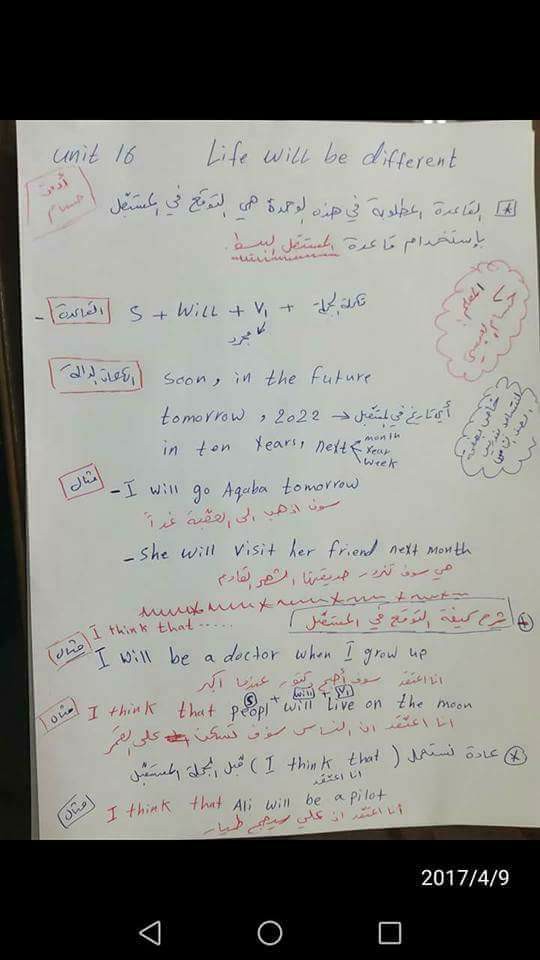 unit 16 Life will be different
القاعدة المطلوبة في هذه الوحدة هي التوقع في المستقبل
بإستخدام قاعدة المستقبل البسيط
القاعدة S + Will + V1 + تكملة الجملة
مجرد
الكلمات الدالة soon, in the future
tomorrow, 2022 → أي تاريخ في المستقبل
in ten Years, next month
Year
week
مثال - I will go Aqaba tomorrow
سوف اذهب الى العقبة غداً
- She will visit her friend next month
هي سوف تزور صديقتها الشهر القادم
شرح كيفة التوقع في المستقبل
I think that .....
مثال I will be a doctor when I grow up
انا اعتقد سوف أصبح دكتور عندما اكبر
S + will V1
مثال I think that peopl will live on the moon
انا اعتقد ان الناس سوف تسكن على القمر
عادة نستعمل (I think that) قبل الجملة المستقبل
انا اعتقد
مثال I think that Ali will be a pilot
أنا اعتقد ان علي سيصبح طيار
2017/4/9